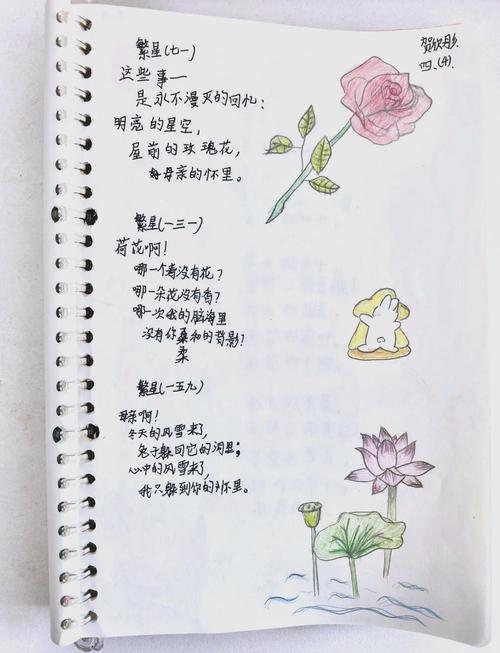 贺欣彤.
四.(4).
繁星(七一)
这些事—
是永不漫灭的回忆:
明亮的星空,
屋前的玫瑰花,
母亲的怀里。
繁星(一三一)
荷花啊!
哪一个春没有花?
哪一朵花没有香?
哪一次我的脑海里
没有你柔和的背影?
柔
繁星(一五九)
母亲啊!
冬天的风雪来了,
兔子躲回它的洞里;
心中的风雪来了,
我只躲到你的怀里。